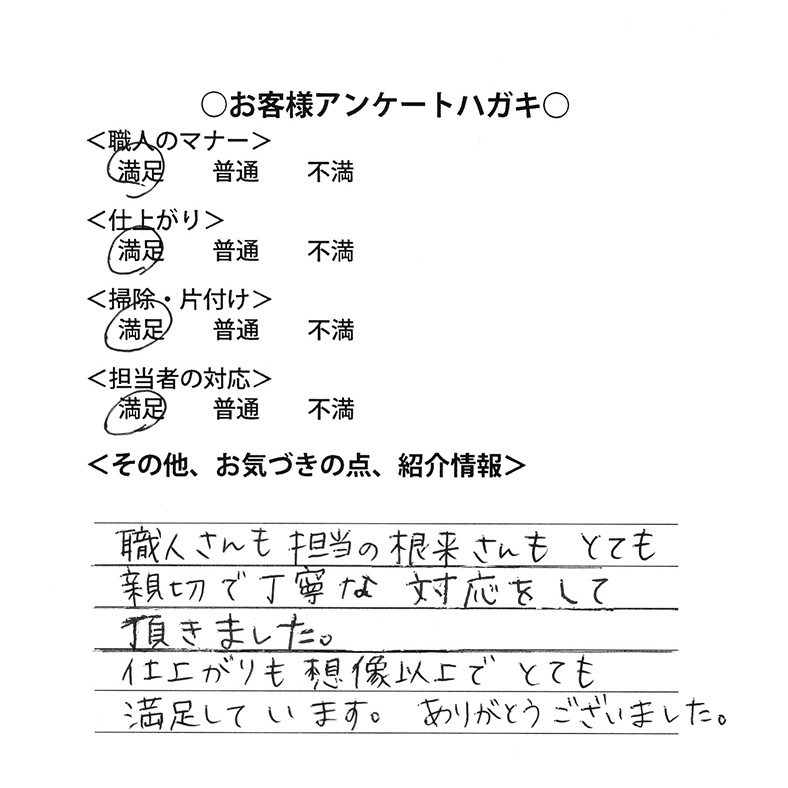 ○お客様アンケートハガキ○
＜職人のマナー＞
満足 普通 不満
＜仕上がり＞
満足 普通 不満
＜掃除・片付け＞
満足 普通 不満
＜担当者の対応＞
満足 普通 不満
＜その他、お気づきの点、紹介情報＞
職人さんも担当の根来さんもとても
親切で丁寧な対応をして
頂きました。
仕上がりも想像以上でとても
満足しています。ありがとうございました。